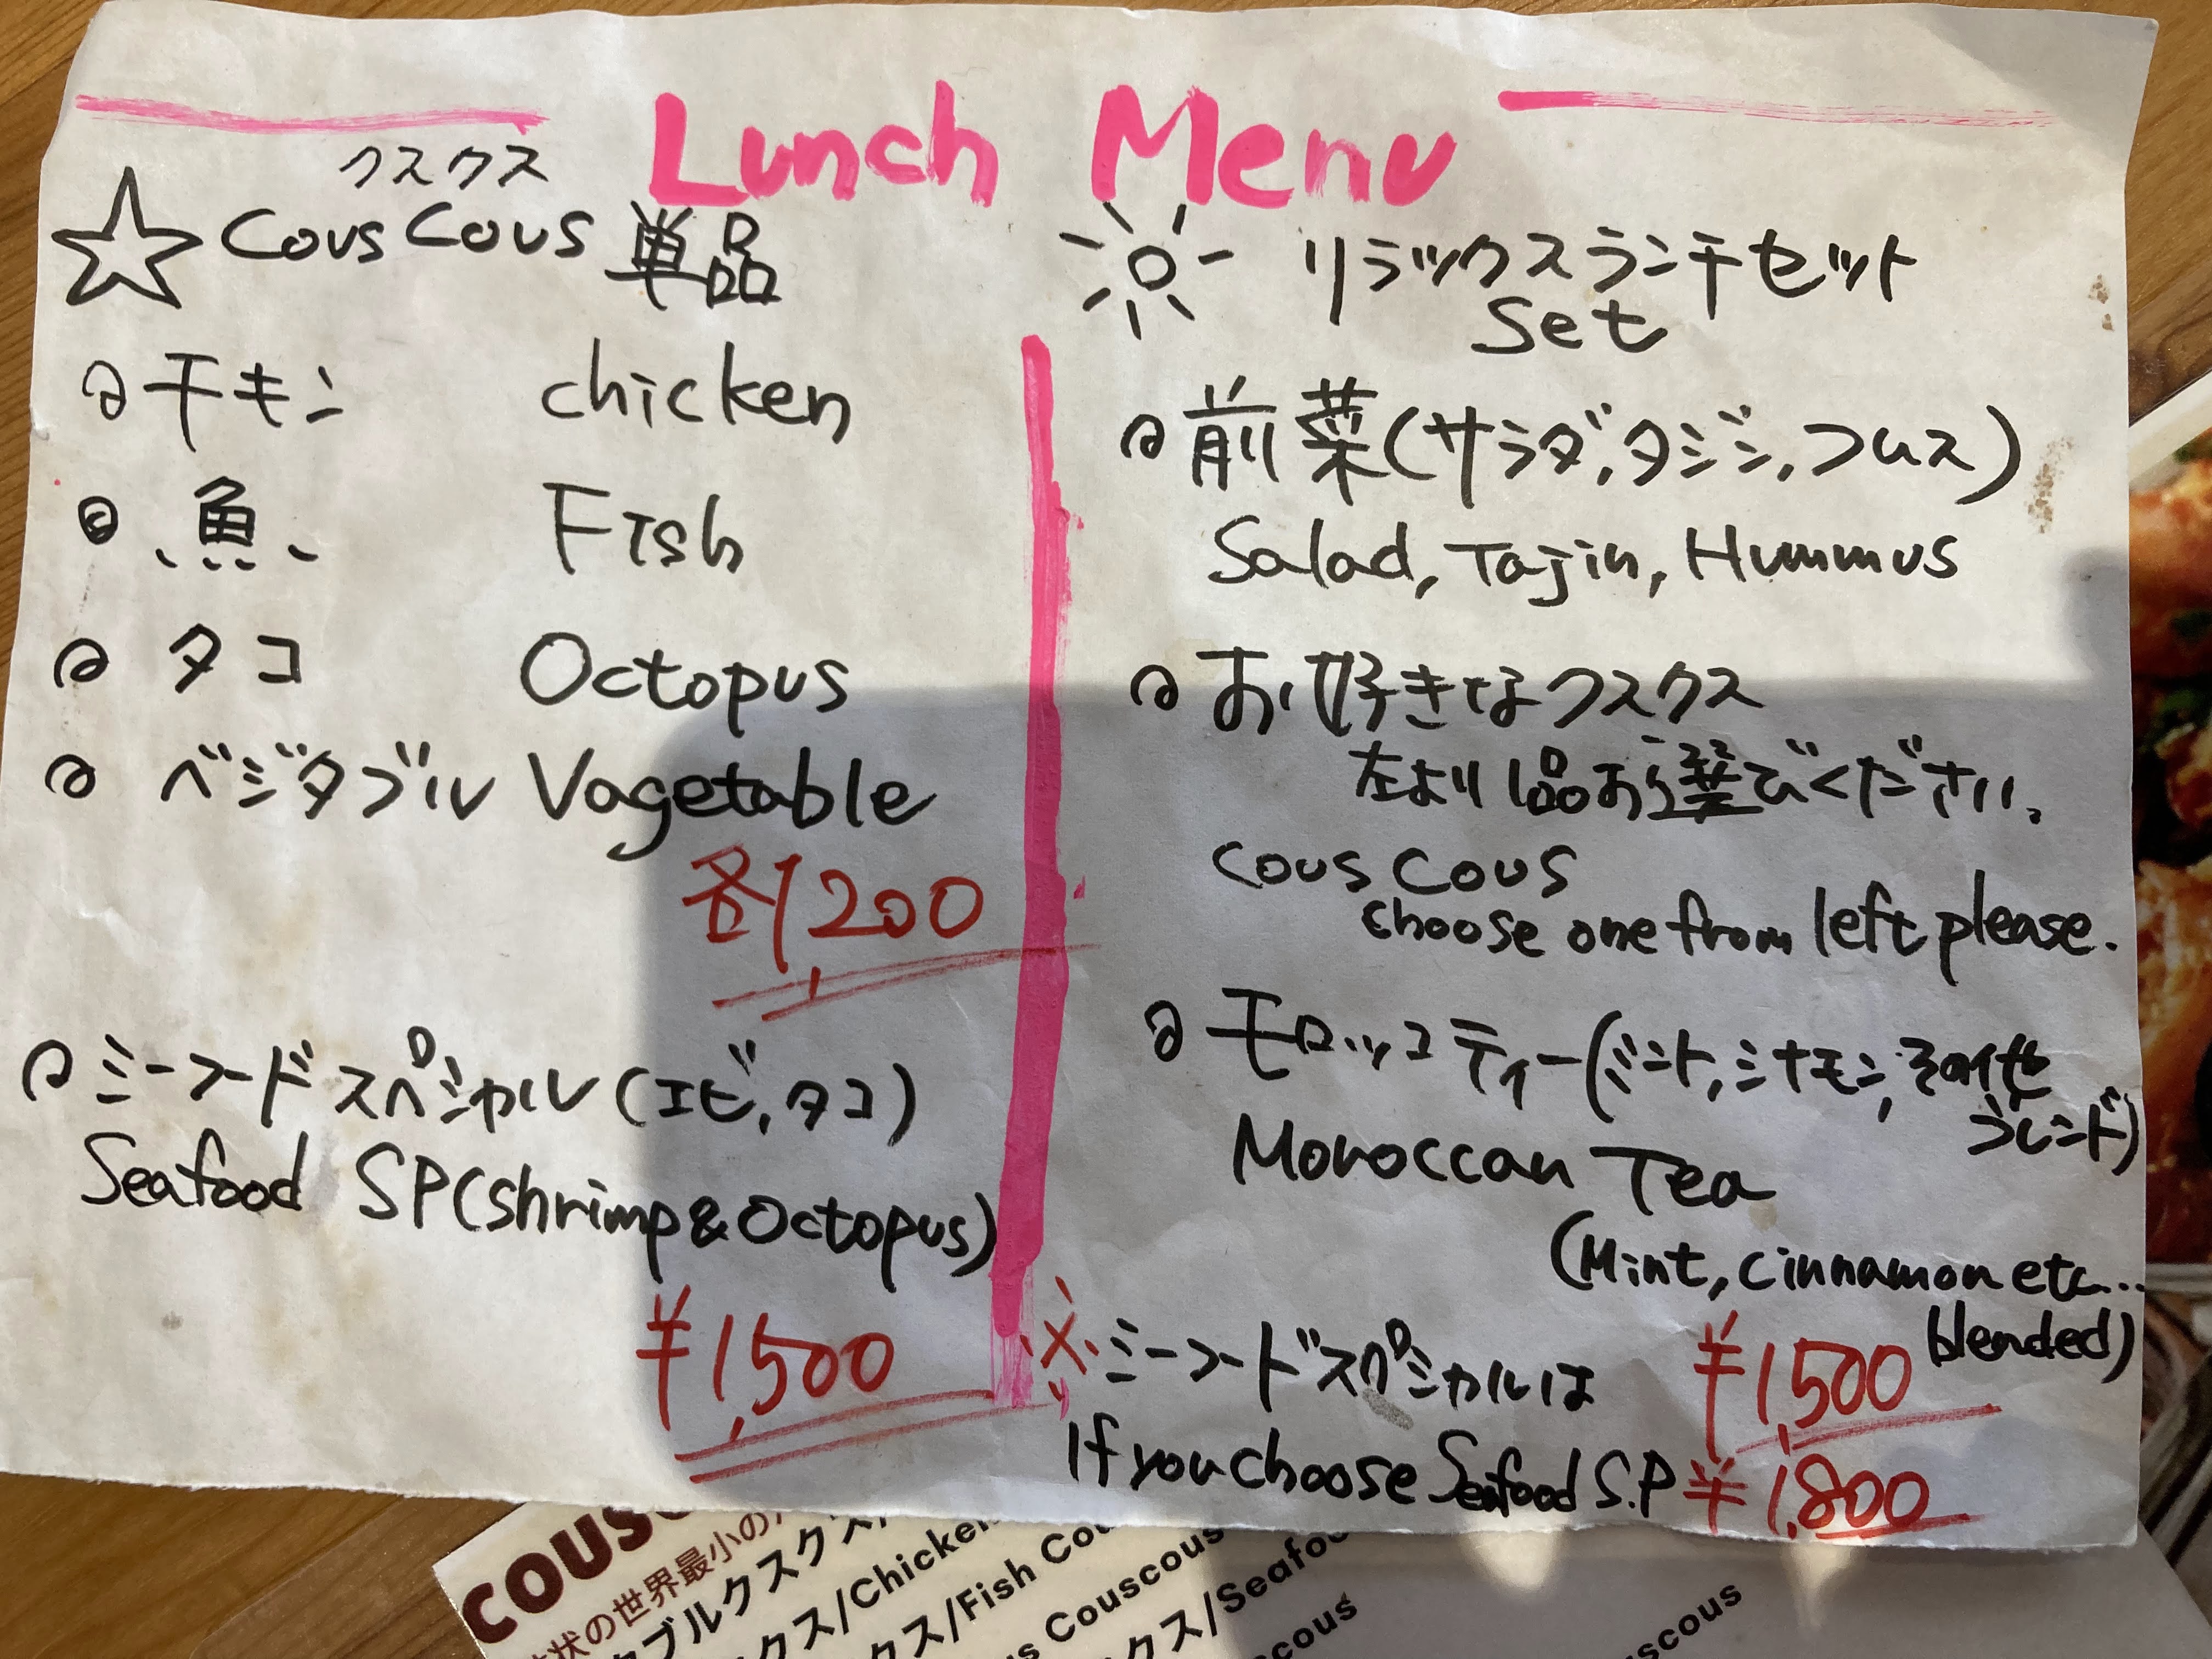 Lunch Menu
クスクス
☆ Cous Cous 単品
チキン chicken
魚 Fish
タコ Octopus
ベジタブル Vagetable
各1,200
シーフードスペシャル(エビ,タコ)
Seafood SP(shrimp&Octopus)
¥1,500
リラックスランチセット
Set
前菜(サラダ,タジン,フムス)
Salad, Tajin, Hummus
お好きなクスクス
左より1品お選びください。
Cous Cous
choose one from left please.
モロッコティー(ミント,シナモン,その他
ブレンド)
Moroccan Tea
(Mint, cinnamon etc...
blended)
¥1,500
※シーフードスペシャルは
If you choose Seafood S.P ¥1,800
COUS
状の世界最小の
ブルクスクス/
クス/Chicken
クス/Fish Cou
us Couscous
クス/Seafoo
scous
scous